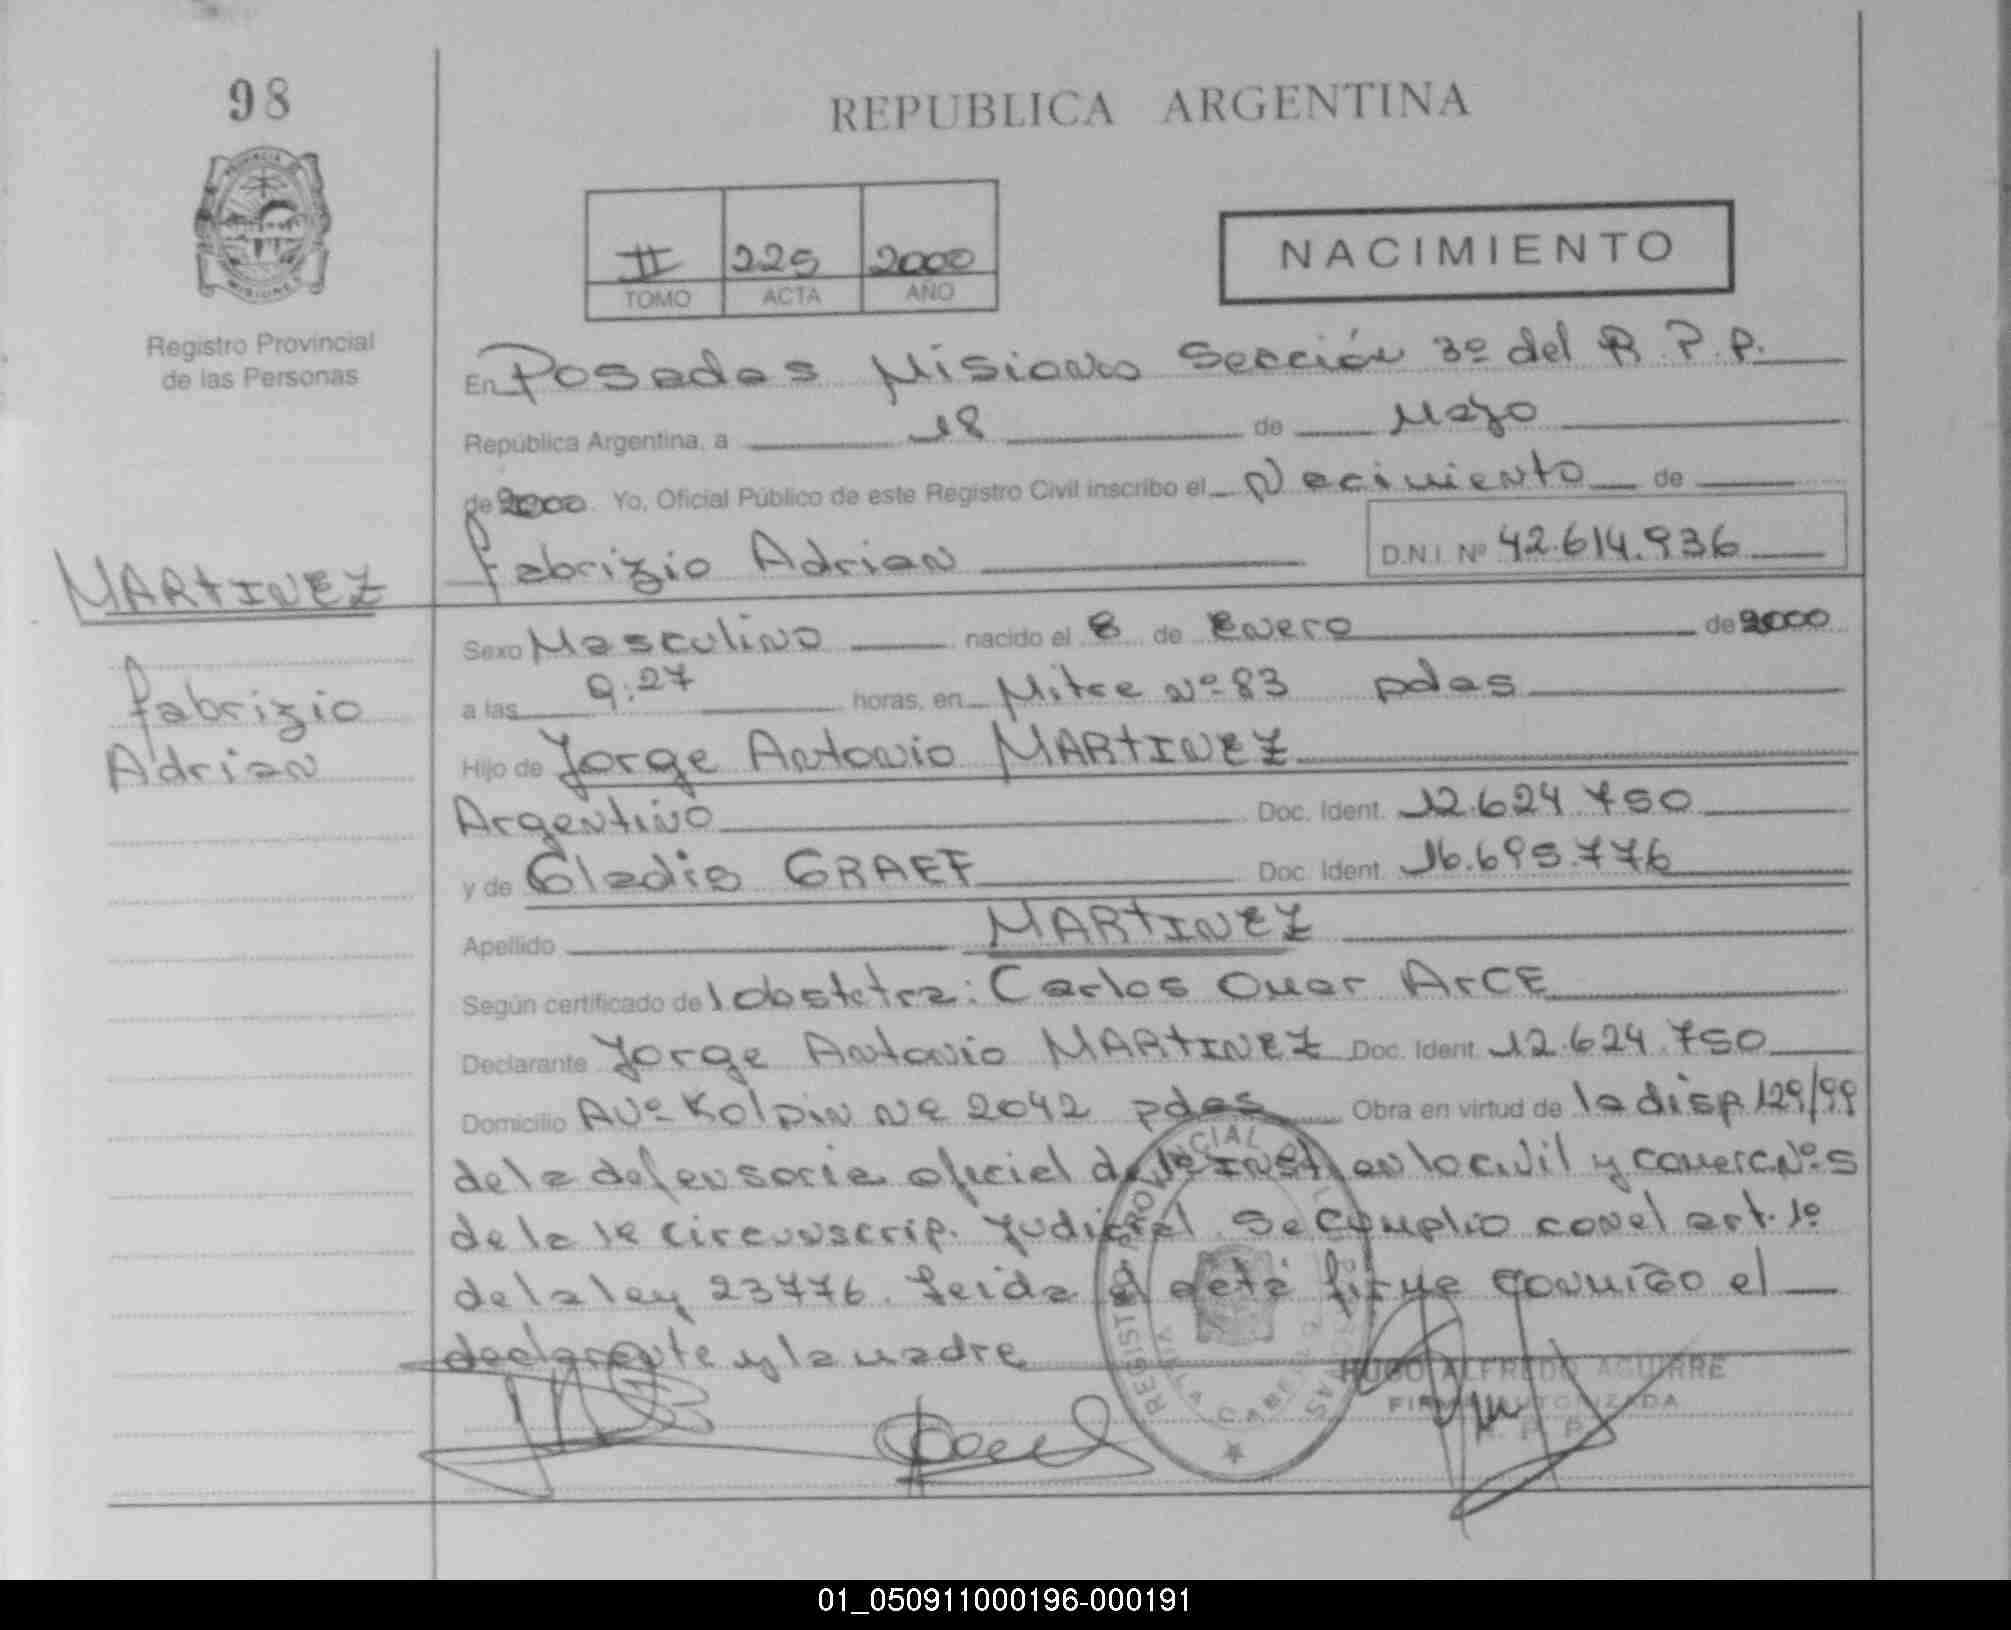 98
REPUBLICA ARGENTINA
PROVINCIA
MISIONES
Registro Provincial
de las Personas
II 225 2000
TOMO ACTA AÑO
NACIMIENTO
En Posadas Misiones Sección 3º del R.P.P.
República Argentina, a 18 de Mayo
de 2000. Yo, Oficial Público de este Registro Civil inscribo el Nacimiento de
Fabrizio Adrian D.N.I. Nº 42.614.936
MARTINEZ
Fabrizio
Adrian
Sexo Masculino nacido el 8 de Enero de 2000
a las 9:27 horas, en Mitre Nº 83 pdas
Hijo de Jorge Antonio MARTINEZ
Argentino Doc. Ident. 12.624.750
y de Gladis GRAEF Doc. Ident. 16.695.776
Apellido MARTINEZ
Según certificado de l obstetra: Carlos Omar ArCE
Declarante Jorge Antonio MARTINEZ Doc. Ident. 12.624.750
Domicilio AVº Kolpin Nº 2042 pdas Obra en virtud de la disp 129/99
de la defensoria oficial de 1º Inst en lo civil y comerc Nº 5
de la 1º circunscrip. Judicial. Se cumplio con el art. 1º
de la ley 23776. Leida el acta firma conmigo el
declarante y la madre
REGISTRO PROVINCIAL DE LAS PERSONAS
HUGO ALFREDO AGUIRRE
FIRMA AUTORIZADA
R. P. P.
01_050911000196-000191